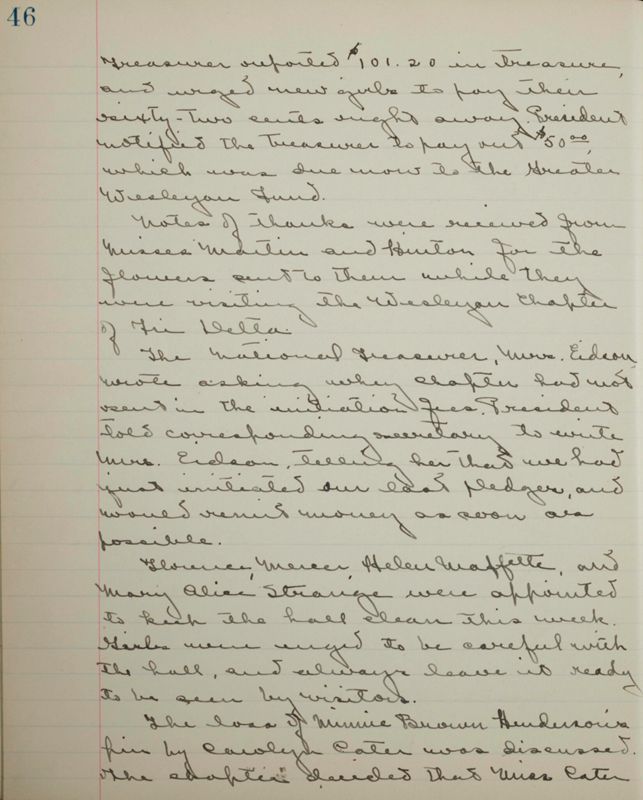 46
Treasurer reported $101.20 in treasure,
and urged new girls to pay their
sixty-two cents right away. President
notified the Treasurer to pay out $50.00,
which was due now to the Greater
Wesleyan Fund.
Notes of thanks were received from
Misses Martin and Hinton for the
flowers sent to them while they
were visiting the Wesleyan Chapter
of Tri Delta.
The National Treasurer, Mrs. Eidson,
wrote asking why chapter had not
sent in the initiation fees. President
told corresponding secretary to write
Mrs. Eidson, telling her that we had
just initiated our last pledges, and
would remit money as soon as
possible.
Florence Mercer, Helen Maffette, and
Mary Alice Strange were appointed
to keep the hall clean this week.
Girls were urged to be careful with
the hall, and always leave it ready
to be seen by visitors.
The loss of Minnie Brown Henderson's
pin by Carolyn Cater was discussed.
The chapter decided that Miss Cater